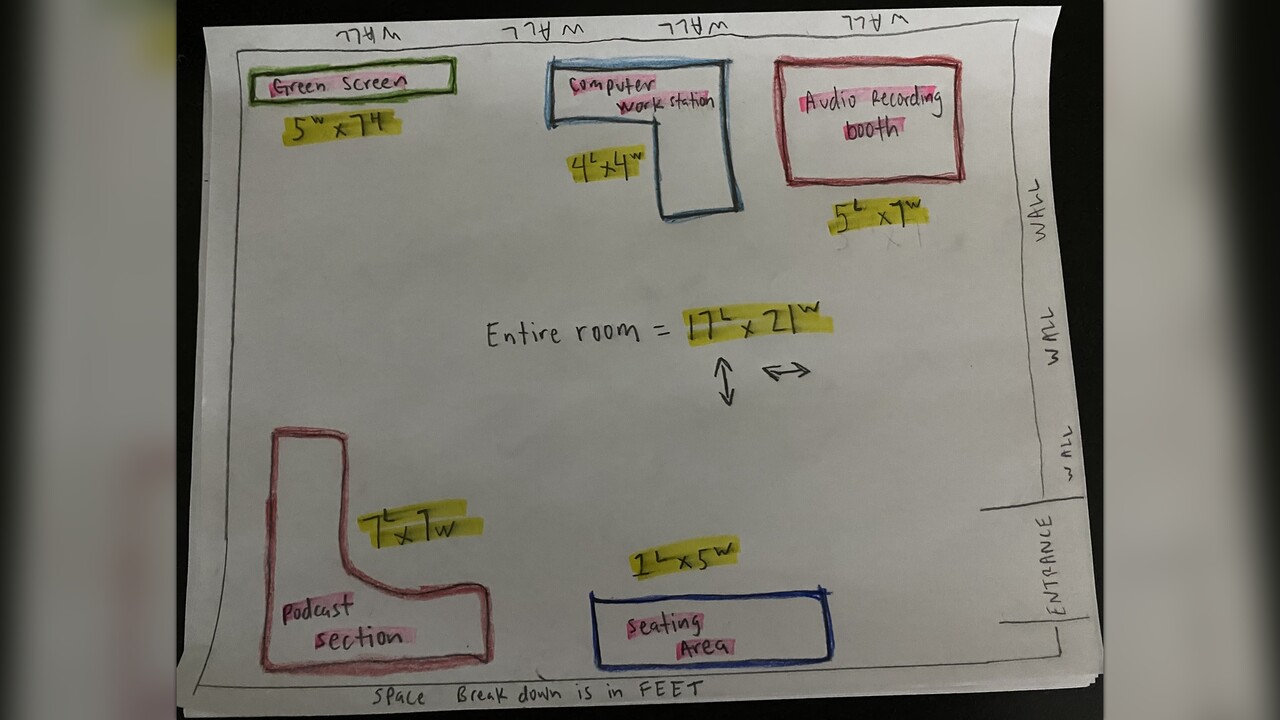 WALL WALL WALL WALL
Green Screen
5W x 7H
Computer
Work station
4L x 4W
Audio Recording
booth
5L x 7W
WALL
WALL
WALL
Entire room = 17L x 21W
7L x 7W
Podcast
section
2L x 5W
Seating
Area
ENTRANCE
Space Break down is in FEET